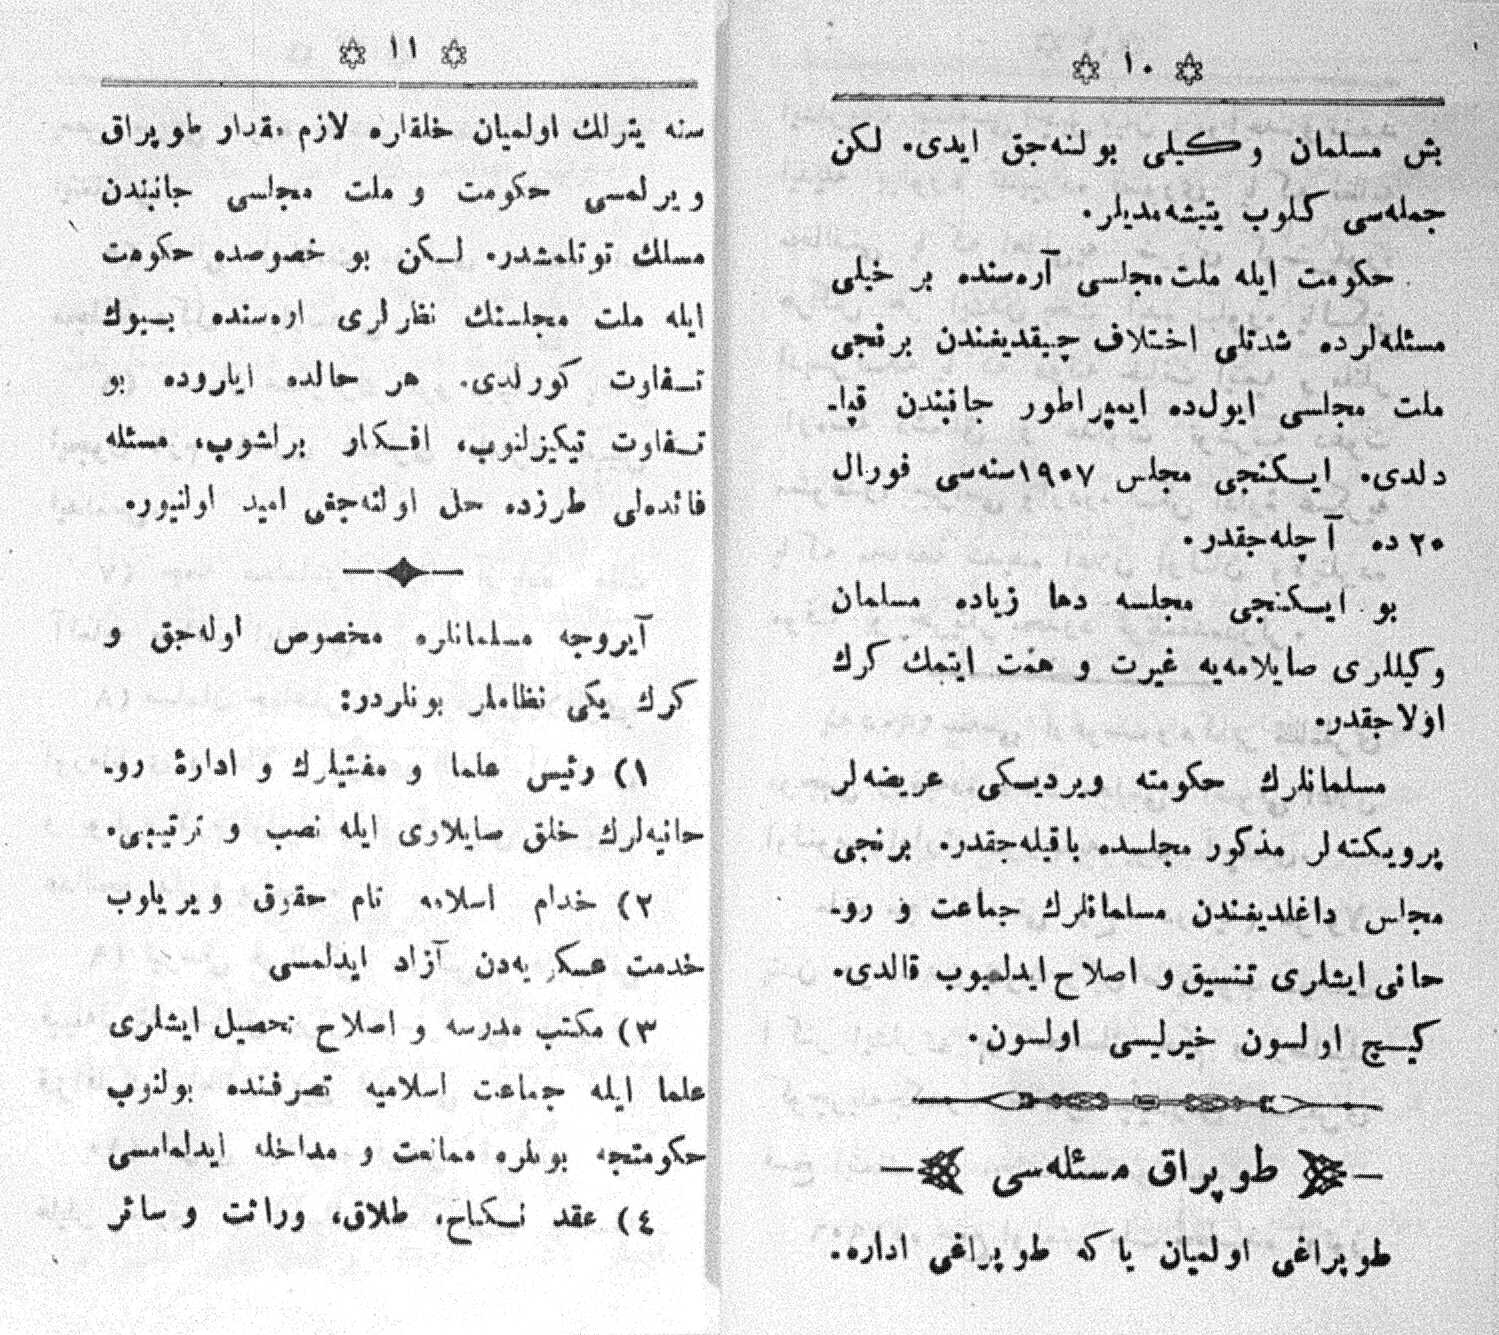 ١٠
بش مسلمان وكيلى بولنه‌جق ايدى. لكن
جمله‌سى كلوب يتيشه‌مديلر.
حكومت ايله ملت مجلسى آره‌سنده بر خيلى
مسئله‌لرده شدتلى اختلاف چيقديغندن برنجى
ملت مجلسى ايول‌ده ايمپراطور جانبندن قپا‍ـ
دلدى. ايكنجى مجلس ١٩٠٧سنه‌سى فورال
٢٠ ده آچله‌جقدر.
بو ايكنجى مجلسه دها زياده مسلمان
وكيللرى صايلامه‌يه غيرت و همت ايتمك كرك
اولاجقدر.
مسلمانلرك حكومته ويرديكى عريضه‌لر
پرويكته‌لر مذكور مجلسده باقيله‌جقدر. برنجى
مجلس داغلديغندن مسلمانلرك جماعت و روـ
حانى ايشلرى تنسيق و اصلاح ايدلميوب قالدى.
كيچ اولسون خيرليسى اولسون.
طوپراق مسئله‌سى
طوپراغى اولميان ياكه طوپراغى اداره.
١١
سنه يترلك اولميان خلقلره لازم مقدار طوپراق
ويرلمسى حكومت و ملت مجلسى جانبندن
مسلك توتلمشدر. لكن بو خصوصده حكومت
ايله ملت مجلسنك نظرلرى اره‌سنده بيوك
تفاوت كورلدى. هر حالده ايلروده بو
تفاوت تيكيزلنوب، افكار برلشوب، مسئله
فائده‌لى طرزده حل اولنه‌جغى اميد اولنيور.
آيروجه مسلمانلره مخصوص اوله‌جق و
كرك يكى نظاملر بونلردر:
١) رئيس علما و مفتيلرك و ادارۀ روـ
حانيه‌لرك خلق صايلاوى ايله نصب و ترتيبى.
٢) خدام اسلامه تام حقوق ويريلوب
خدمت عسكريه‌دن آزاد ايدلمسى
٣) مكتب مدرسه و اصلاح تحصيل ايشلرى
علما ايله جماعت اسلاميه تصرفنده بولنوب
حكومتجه بونلره ممانعت و مداخله ايدلمامسى
٤) عقد نكاح، طلاق، وراثت و سائر